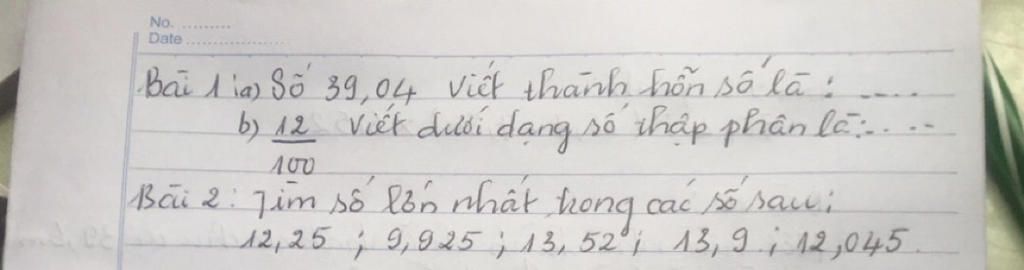 No. ..........
Date ......................
Bài 1: a) Số 39,04 viết thành hỗn số là : ....
b) 12/100 viết dưới dạng số thập phân là:....
Bài 2: Tìm số lớn nhất trong các số sau:
12,25 ; 9,925 ; 13,52 ; 13,9 ; 12,045.